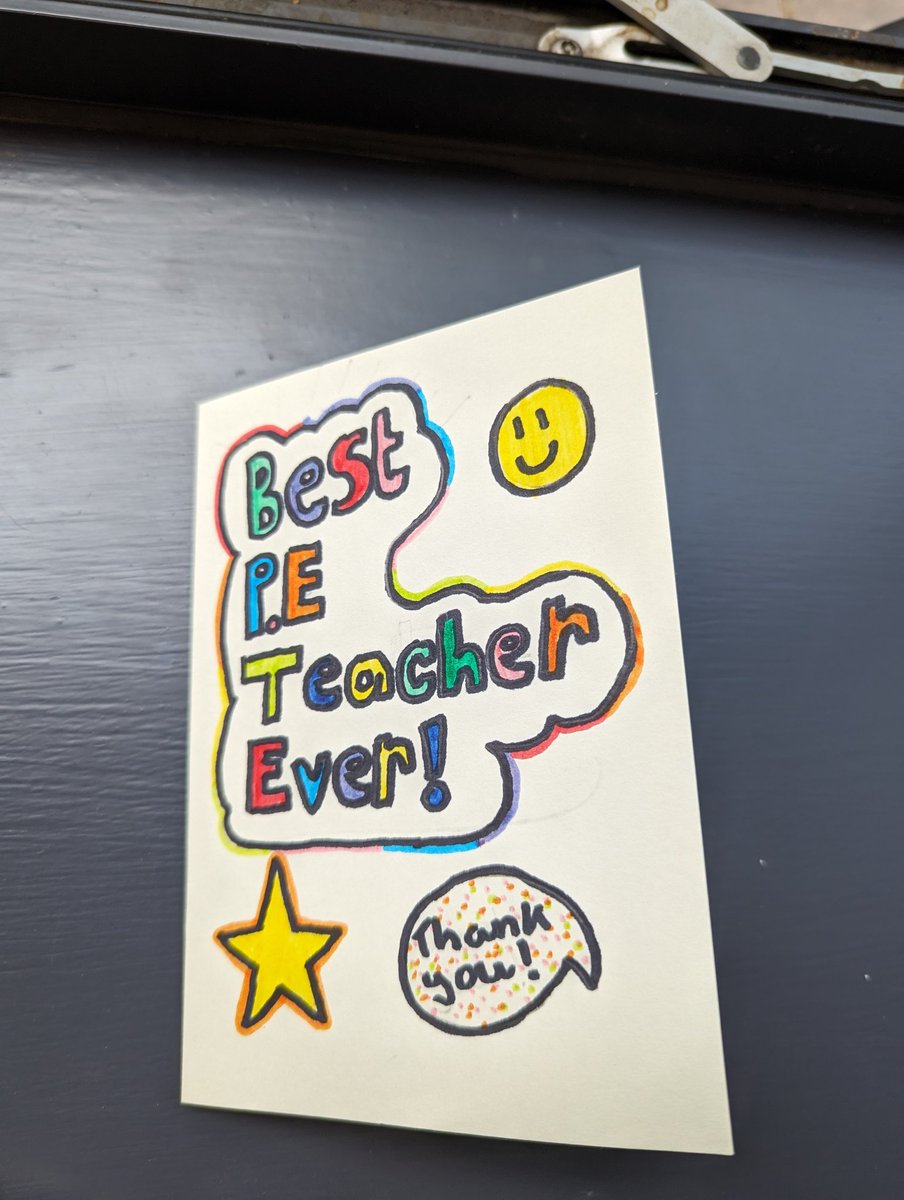 Best
P.E
Teacher
Ever!
Thank
you!